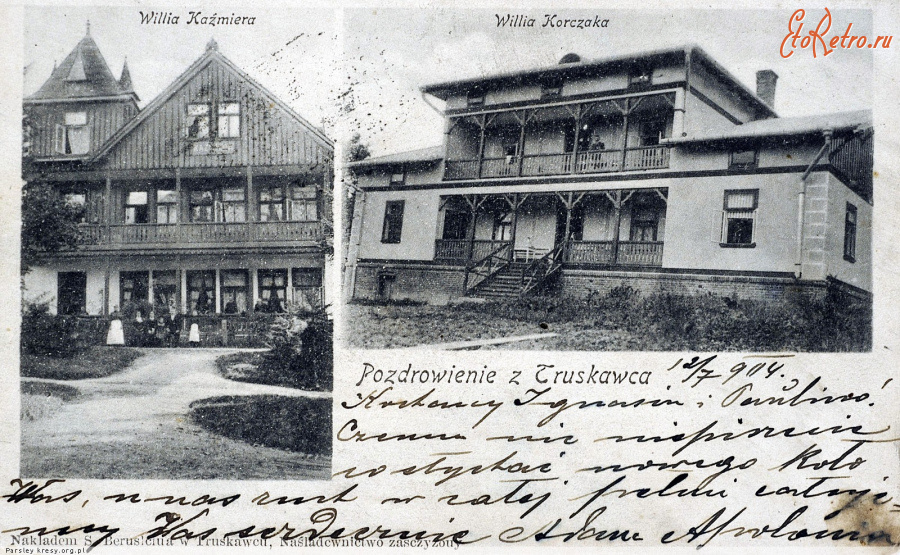 Willia Kaźmiera
Willia Korczaka
EtoRetro.ru
Pozdrowienie z Truskawca 12/7 904.
Kochany Ignasiu i Paulino!
Czemu nie napiszecie
co słychać nowego koło
Was, u nas ruch w całej pełni całuje-
my Was serdecznie Adam Apolonia
Nakładem S. Beruscina w Truskawcu, Naśladownictwo zastrzyżony
Parsley kresy.org.pl